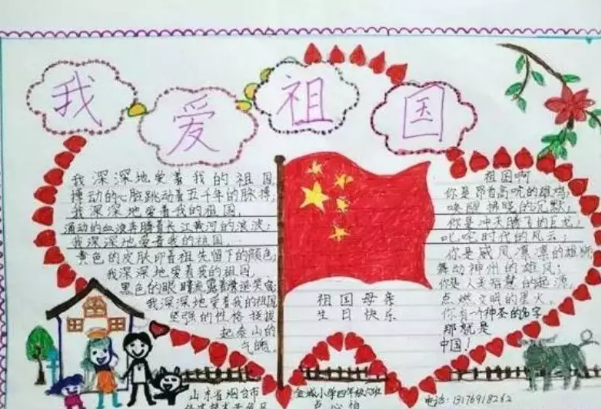 我爱祖国
我深深地爱着我的祖国
搏动的心脏跳动着五千年的脉搏,
我深深地爱着我的祖国,
涌动的血液奔腾着长江黄河的浪波;
我深深地爱着我的祖国
黄色的皮肤印着祖先留下的颜色;
我深深地爱着我的祖国,
黑色的眼睛
我深深地爱着我的祖国
坚强的性格挺拔
起泰山的
气魄。
祖国母亲
生日快乐
祖国啊
你是昂首高吭的雄鸡
唤醒拂晓的沉默,
你是冲天腾飞的巨龙
叱咤时代的风云,
你是威风凛凛的雄狮
舞动神州的雄风;
你是人类智慧的起源,
点燃文明的星火。
你有个神圣的名字
那就是
中国!
山东省烟台市
金城小学四年级六班
电话:13176918262